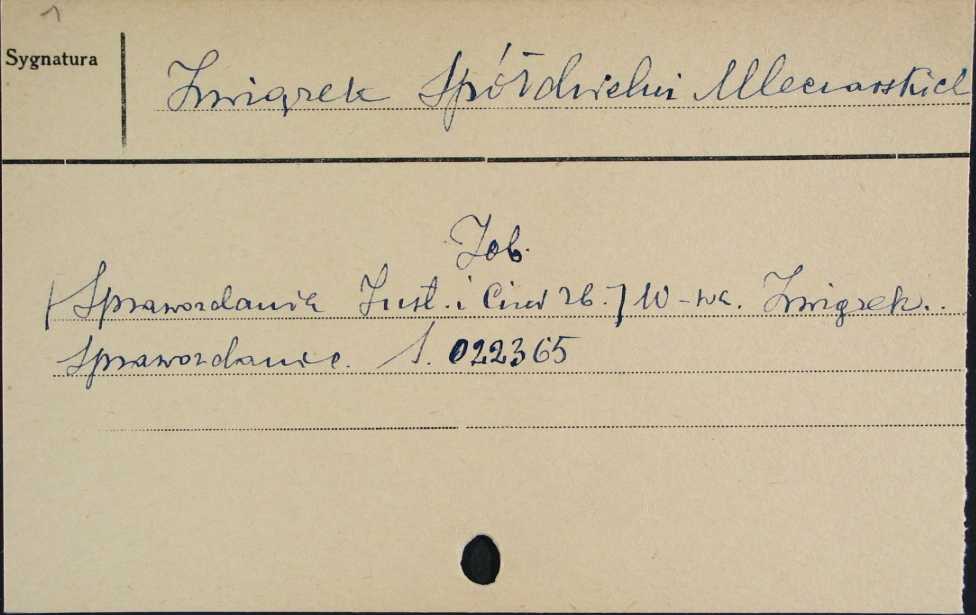 1
Sygnatura
Związek Spółdzielni Mleczarskich
Zob.
[Sprawozdanie Inst. i Ciał zb.] W-wa. Związek..
Sprawozdanie. S. 022365